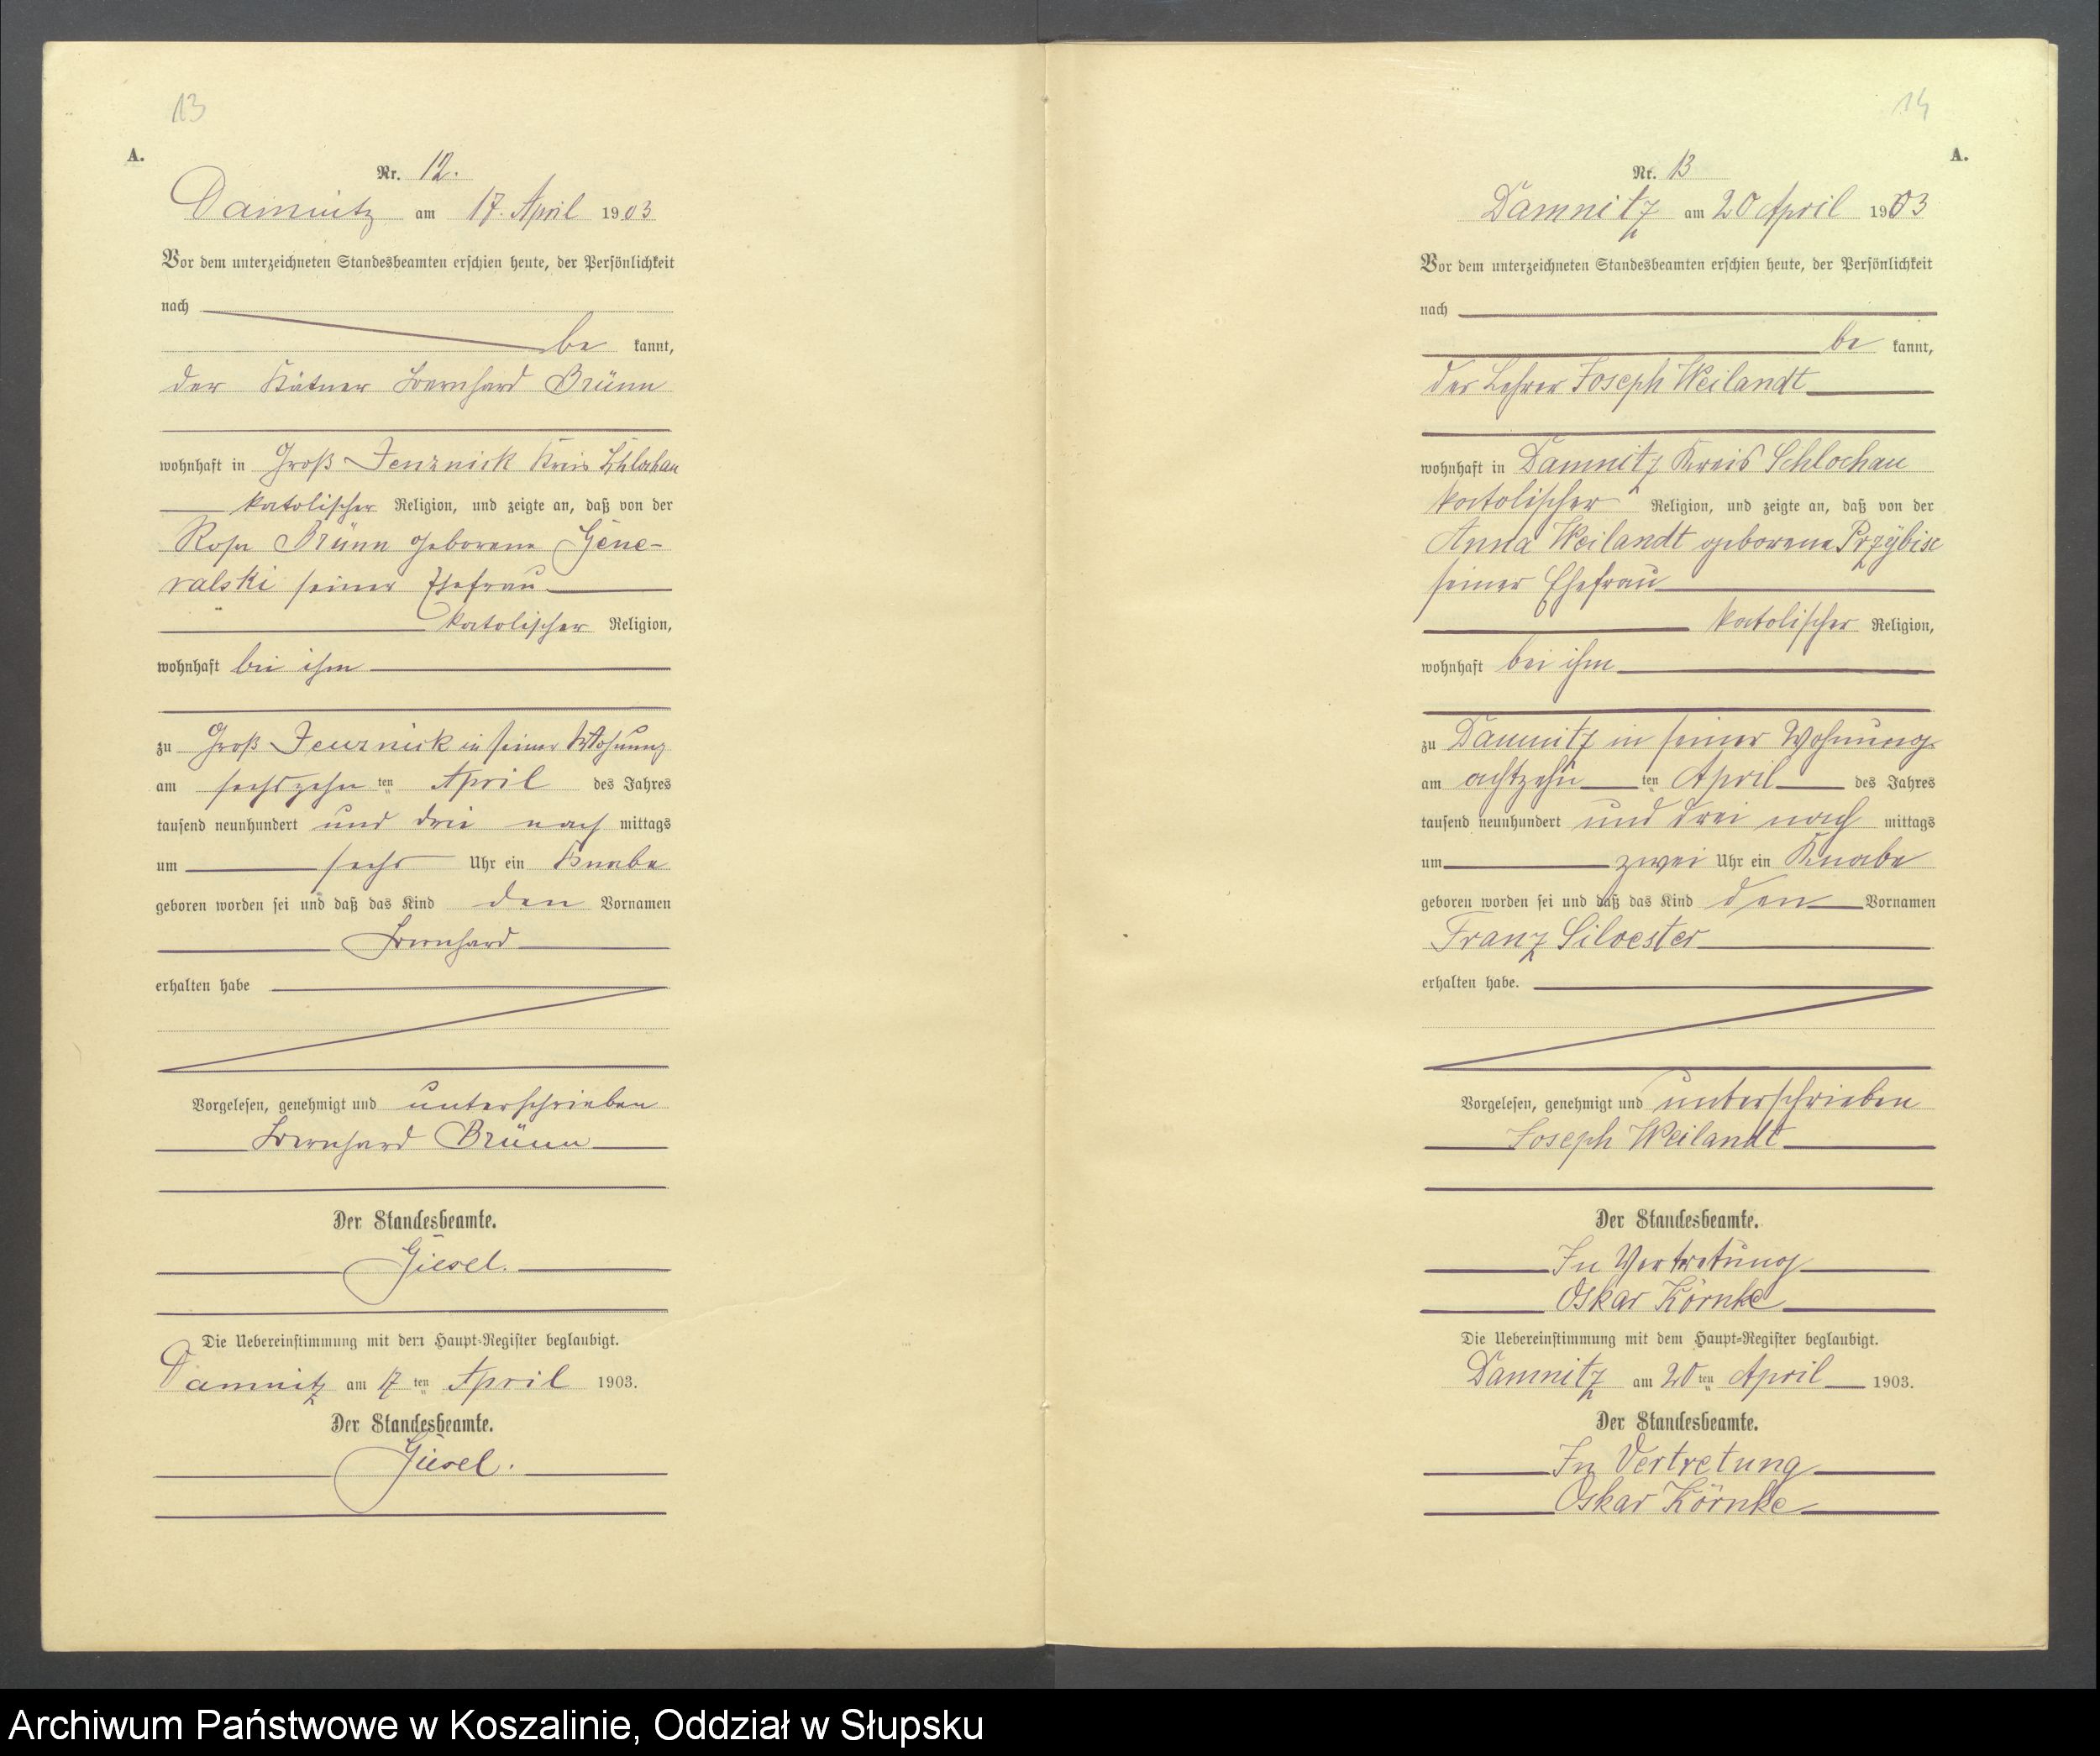 13
A.
Nr. 12.
Damnitz am 17. April 1903
Vor dem unterzeichneten Standesbeamten erschien heute, der Persönlichkeit
nach
be kannt,
der Kätner Bernhard Brünn
wohnhaft in Groß Jenznick Kreis Schlochau
katolischer Religion, und zeigte an, daß von der
Rosa Brünn geborene Gene-
ralski seiner Ehefrau
katolischer Religion,
wohnhaft bei ihm
zu Groß Jenznick in seiner Wohnung
am sechszehn ten April des Jahres
tausend neunhundert und drei nach mittags
um sechs Uhr ein Knabe
geboren worden sei und daß das Kind den Vornamen
Bernhard
erhalten habe
Vorgelesen, genehmigt und unterschrieben
Bernhard Brünn
Der Standesbeamte.
Giesel.
Die Uebereinstimmung mit dem Haupt-Register beglaubigt.
Damnitz am 17 ten April 1903.
Der Standesbeamte.
Giesel.
14
A.
Nr. 13
Damnitz am 20 April 1903
Vor dem unterzeichneten Standesbeamten erschien heute, der Persönlichkeit
nach
be kannt,
der Lehrer Joseph Weilandt
wohnhaft in Damnitz Kreis Schlochau
katolischer Religion, und zeigte an, daß von der
Anna Weilandt geborene
seiner Ehefrau
katolischer Religion,
wohnhaft bei ihm
zu Damnitz in seiner Wohnung
am achtzehn ten April des Jahres
tausend neunhundert und drei nach mittags
um zwei Uhr ein Knabe
geboren worden sei und daß das Kind den Vornamen
Franz Silvester
erhalten habe.
Vorgelesen, genehmigt und unterschrieben
Joseph Weilandt
Der Standesbeamte.
In Vertretung
Oskar Körnke
Die Uebereinstimmung mit dem Haupt-Register beglaubigt.
Damnitz am 20 ten April 1903.
Der Standesbeamte.
In Vertretung
Oskar Körnke
Archiwum Państwowe w Koszalinie, Oddział w Słupsku